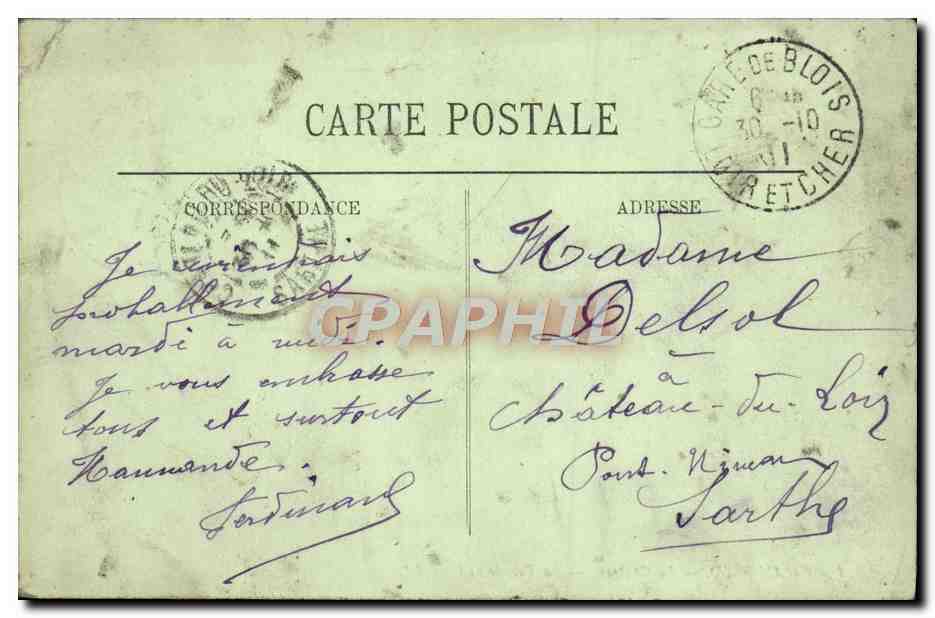 CARTE POSTALE
GARE DE BLOIS
30 -10
LOIR ET CHER
CORRESPONDANCE
Je
probablement
mardi à midi.
Je vous embrasse
tous et surtout
Ferdinand
ADRESSE
Madame
Delsol
à
Château-du-Loir
Pont-
Sarthe
CPAPHIE